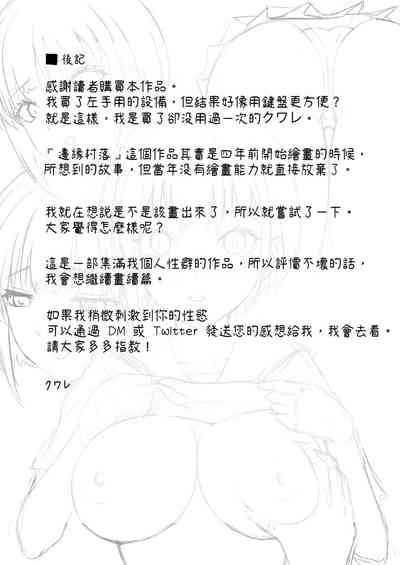 ■後記
感謝讀者購買本作品。
我買了左手用的設備，但結果好像用鍵盤更方便？
就是這樣，我是買了卻沒用過一次的クワレ。
「邊緣村落」這個作品其實是四年前開始繪畫的時候，
所想到的故事，但當年沒有繪畫能力就直接放棄了。
我就在想說是不是該畫出來了，所以就嘗試了一下。
大家覺得怎麼樣呢？
這是一部集滿我個人性癖的作品，所以評價不壞的話，
我會想繼續畫續篇。
如果我稍微刺激到你的性慾
可以通過 DM 或 Twitter 發送您的感想給我，我會去看。
請大家多多指教！
クワレ